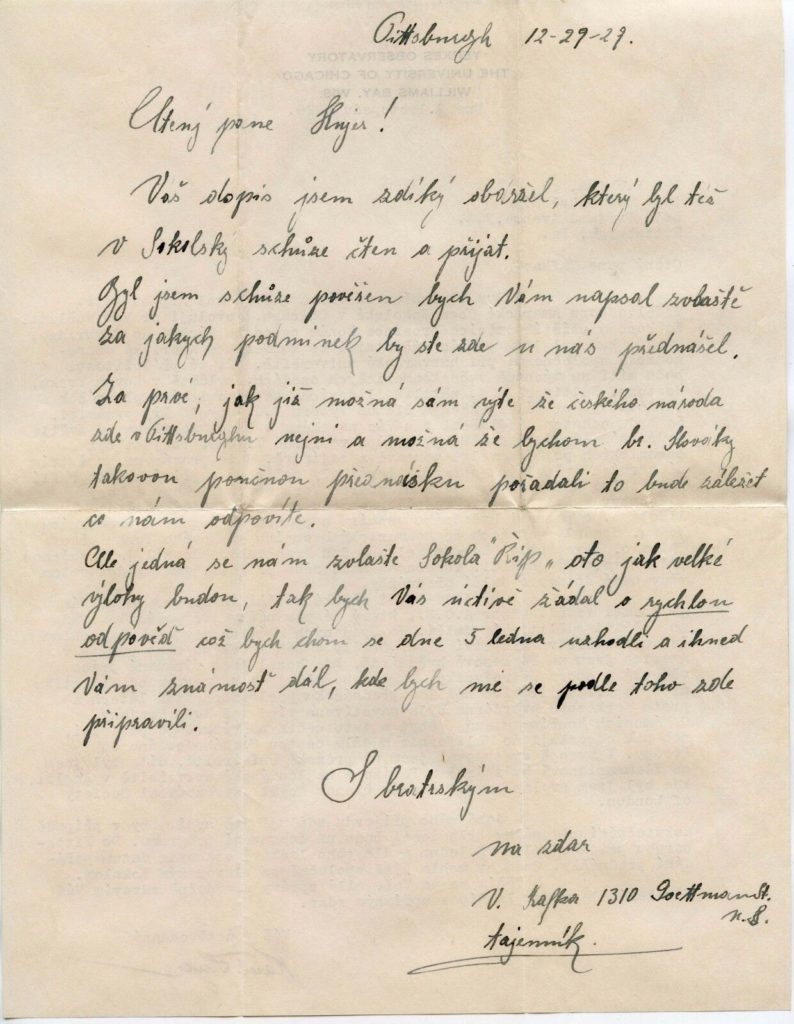 Pittsburgh 12-29-27.
YERKES OBSERVATORY
THE UNIVERSITY OF CHICAGO
WILLIAMS BAY, WIS.
Ctený pane Hujer!
Vaš dopis jsem zdíký obaržel, který byl též
v Sokolský schůze čten a přijat.
Byl jsem schůze pověšen bych Vám napsal zvlaště
za jakych podminek by ste zde u nás přednášel.
Za prvé, jak již možná sám výte že českého národa
zde v Pittsburghu nejni a možná že bychom br. Slováky
takovou poučnou přednášku pořadali to bude záležet
co nám odpovíte.
Ale jedná se nám zvlaště Sokola "Řip" oto jak velké
výlohy budou, tak bych Vás úctivě žádal o rychlou
odpověď což bych chom se dne 5 ledna uzhodli a ihned
Vám známosť dál, kde bych mé se podle toho zde
připravili.
S bratrským
na zdar
V. Kafka 1310 Goettman St.
N.S.
tajemník.